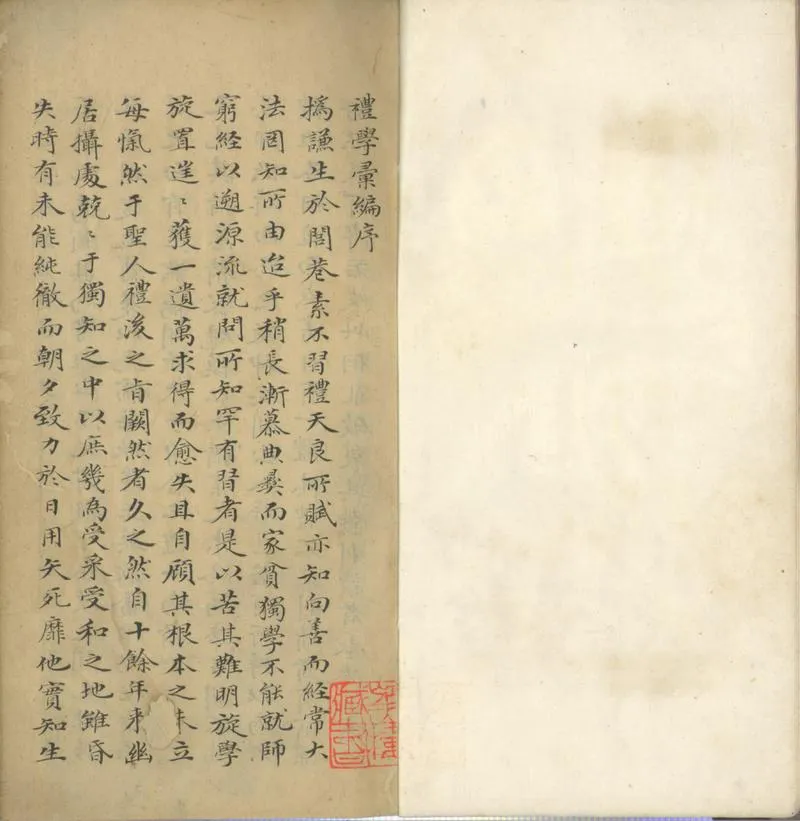 禮學彙編序
撝謙生於閭巷素不習禮天良所賦亦知向善而經常大
法罔知所由迨乎稍長漸慕典彝而家貧獨學不能就師
窮經以遡源流就問所知罕有習者是以苦其難明旋學
旋置進〻獲一遺萬求得而愈失且自顧其根本之未立
每愾然于聖人禮後之旨闕然者久之然自十餘年來幽
居攝處兢〻于獨知之中以庶幾為受采受和之地雖昏
失時有未能純徹而朝夕致力於日用矢死靡他實知生
藏書